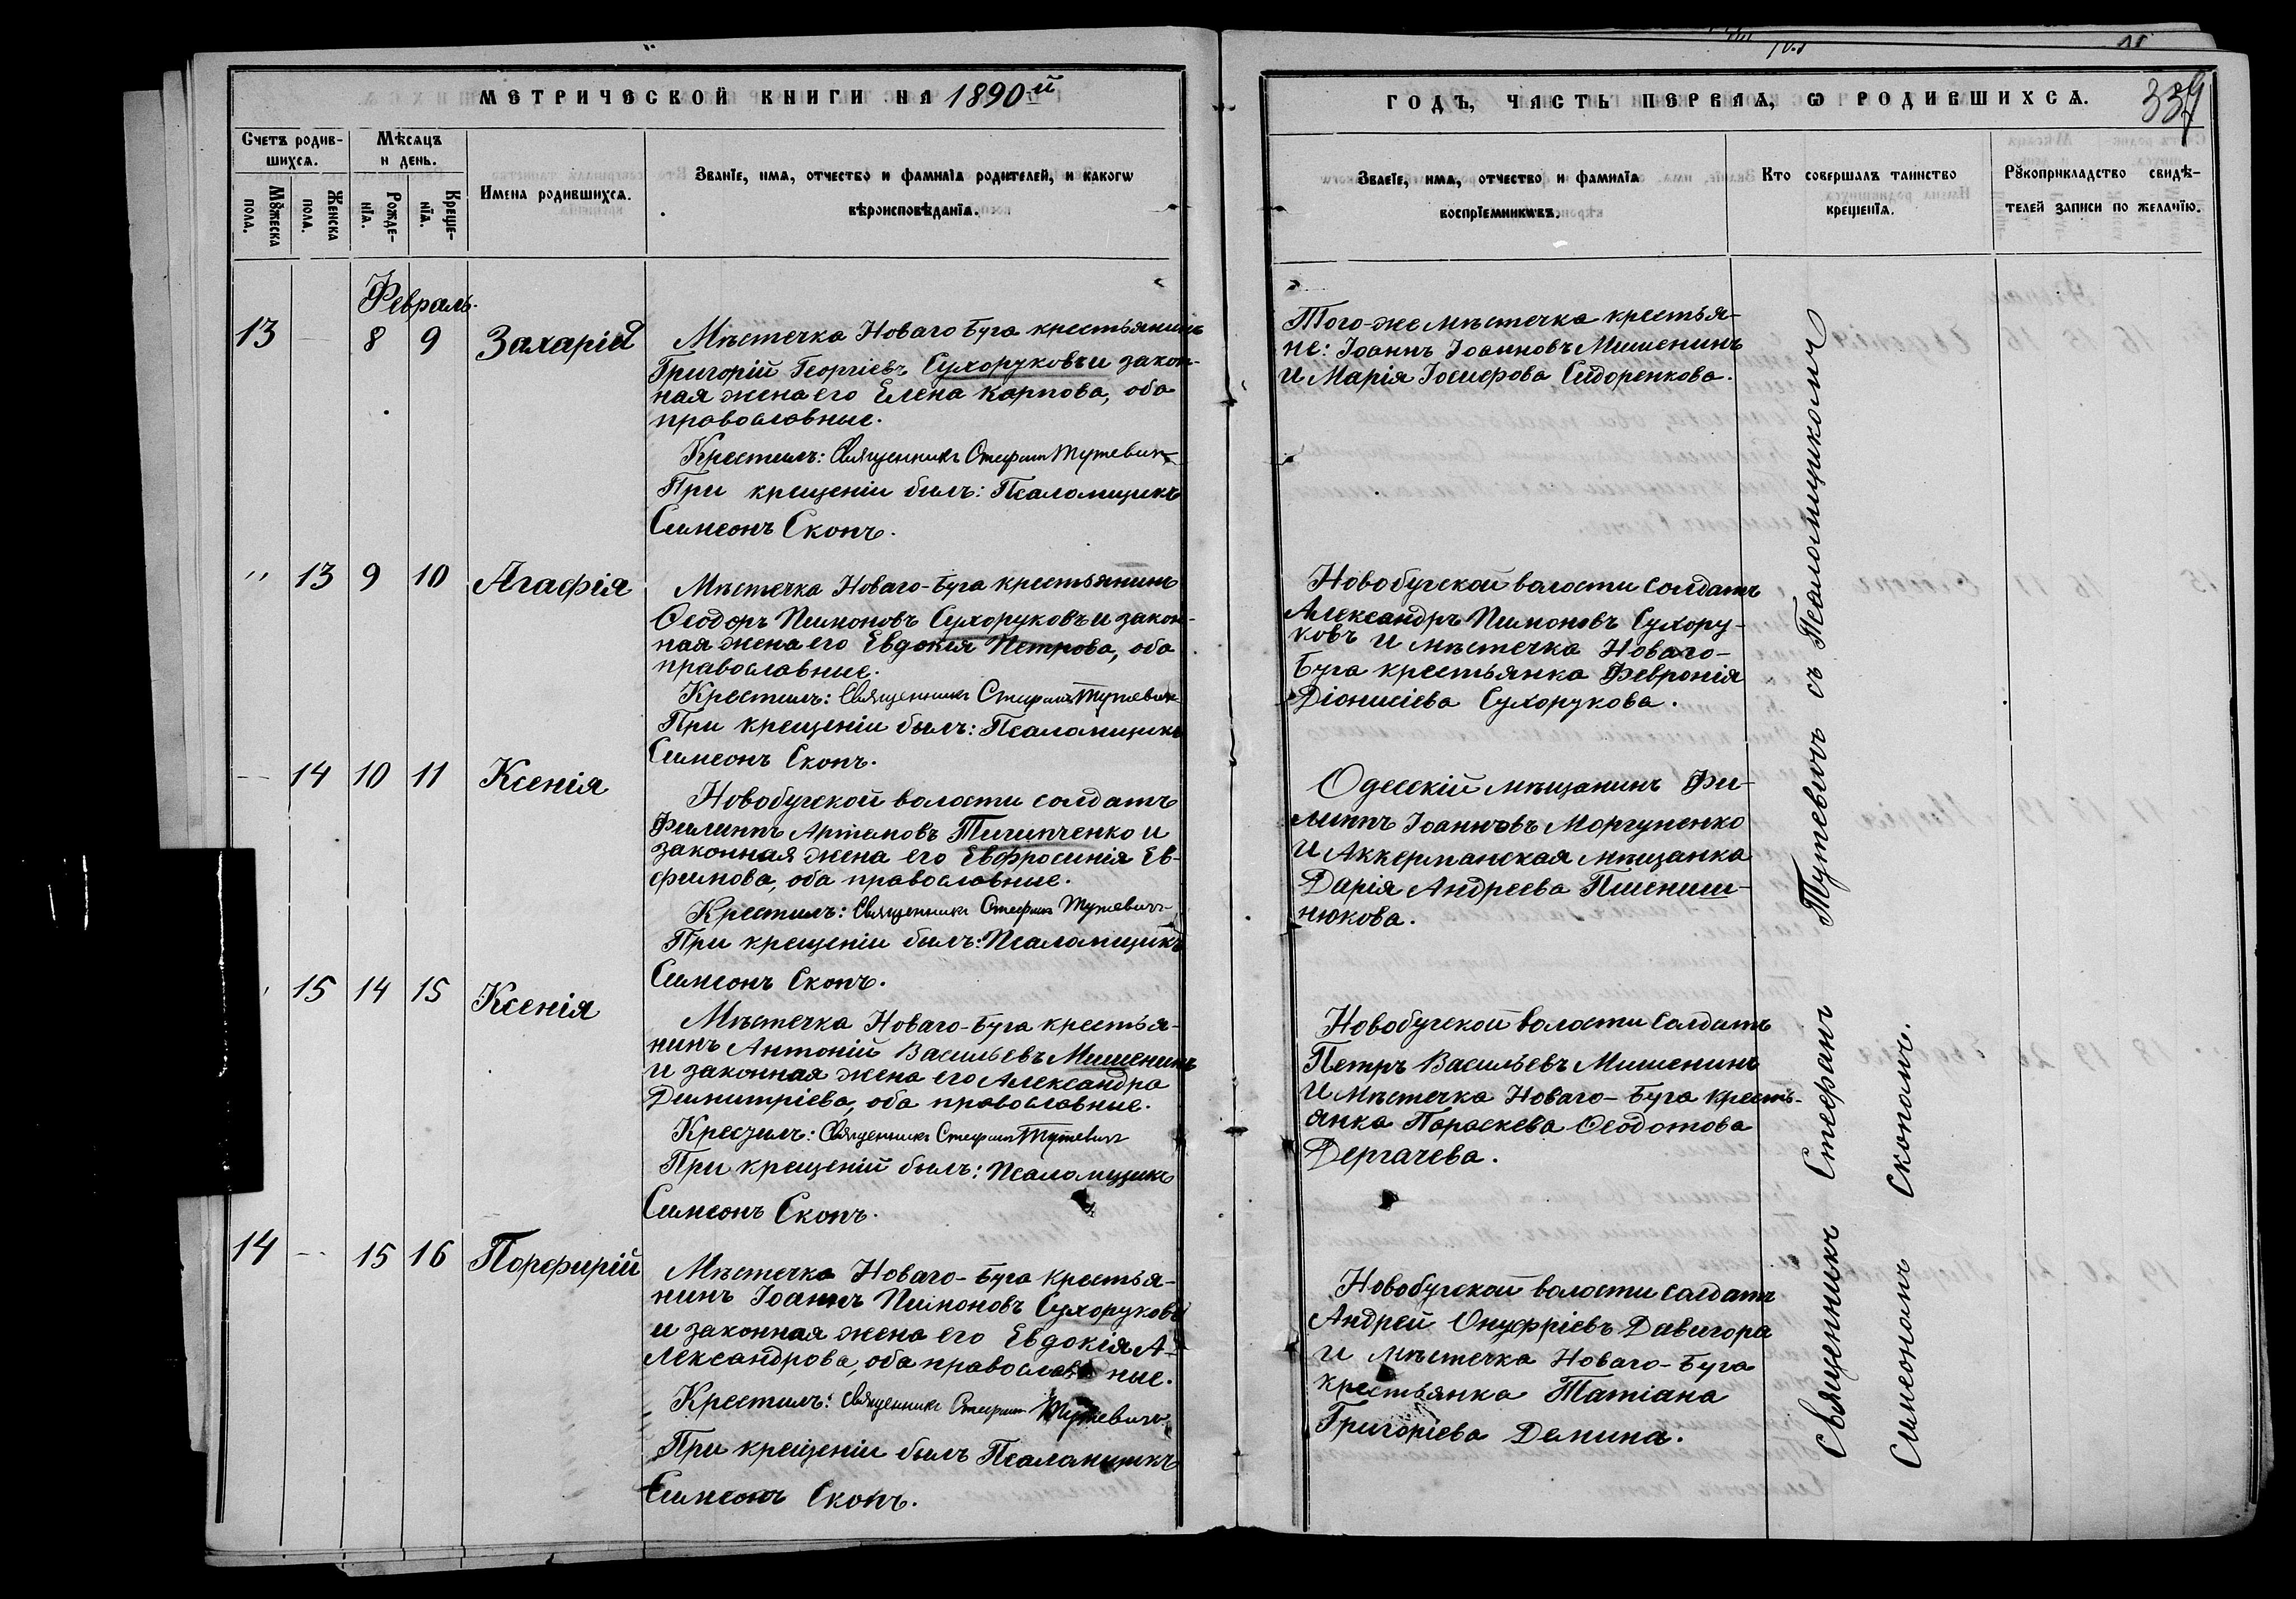 МЕТРИЧЕСКОЙ КНИГИ НА 1890-й
Счетъ родив-
шихся.
Мѣсяцъ
и день.
Мужеска
пола.
Женска
пола.
Рожде-
нїя.
Креще-
нїя.
Имена родившихся.
Званїе, имя, отчество и фамилїя родителей, и какогѡ
вѣроисповѣданїя.
Февраль.
13 — 8 9 Захарій
Мѣстечка Новаго Буга крестьянинъ
Григорій Георгіевъ Сухоруковъ и закон-
ная жена его Елена Карпова, оба
православные.
Крестилъ: Священникъ Стефанъ Тутевичъ
При крещеніи былъ: Псаломщикъ
Симеонъ Скопъ.
" 13 9 10 Агафія
Мѣстечка Новаго-Буга крестьянинъ
Ѳеодоръ Пимоновъ Сухоруковъ и закон-
ная жена его Евдокія Петрова, оба
православные.
Крестилъ: Священникъ Стефанъ Тутевичъ
При крещеніи былъ: Псаломщикъ
Симеонъ Скопъ.
— 14 10 11 Ксенія
Новобугской волости солдатъ
Филиппъ Артемовъ Тигипченко и
законная жена его Евфросинія Ев-
фимова, оба православные.
Крестилъ: Священникъ Стефанъ Тутевичъ
При крещеніи былъ: Псаломщикъ
Симеонъ Скопъ.
15 14 15 Ксенія
Мѣстечка Новаго-Буга крестья-
нинъ Антоній Васильевъ Мишенинъ
и законная жена его Александра
Димитріева, оба православные.
Крестилъ: Священникъ Стефанъ Тутевичъ
При крещеній былъ: Псаломщикъ
Симеонъ Скопъ.
14 — 15 16 Порфирій
Мѣстечка Новаго-Буга крестья-
нинъ Іоаннъ Пимоновъ Сухоруковъ
и законная жена его Евдокія А-
лександрова, оба православные.
Крестилъ: Священникъ Стефанъ Тутевичъ
При крещеніи былъ Псаломщикъ
Симеонъ Скопъ.
ГОДЪ, ЧАСТЬ ПЕРВАЯ, Ѡ РОДИВШИХСЯ.
339
Званїе, имя, отчество и фамилїя
воспрїемникѡвъ.
Кто совершалъ таинство
крещенїя.
Рукоприкладство свидѣ-
телей записи по желанїю.
Того-же мѣстечка крестья-
не: Іоаннъ Іоанновъ Мишенинъ
и Марія Іосифова Сидоренкова.
Новобугской волости солдатъ
Александръ Пимоновъ Сухору-
ковъ и мѣстечка Новаго-
Буга крестьянка Февронія
Діонисіева Сухорукова.
Одесскій мѣщанинъ Фи-
липпъ Іоанновъ Моргуненко
и Аккерманская мѣщанка
Дарія Андреева Пшениш-
нюкова.
Новобугской волости солдатъ
Петръ Васильевъ Мишенинъ
и мѣстечка Новаго-Буга кресть-
янка Параскева Ѳеодотова
Дергачева.
Новобугской волости солдатъ
Андрей Онуфріевъ Давигора
и мѣстечка Новаго-Буга
крестьянка Татіана
Григоріева Демина.
Священникъ Стефанъ Тутевичъ съ Псаломщикомъ
Симеономъ Скопомъ.